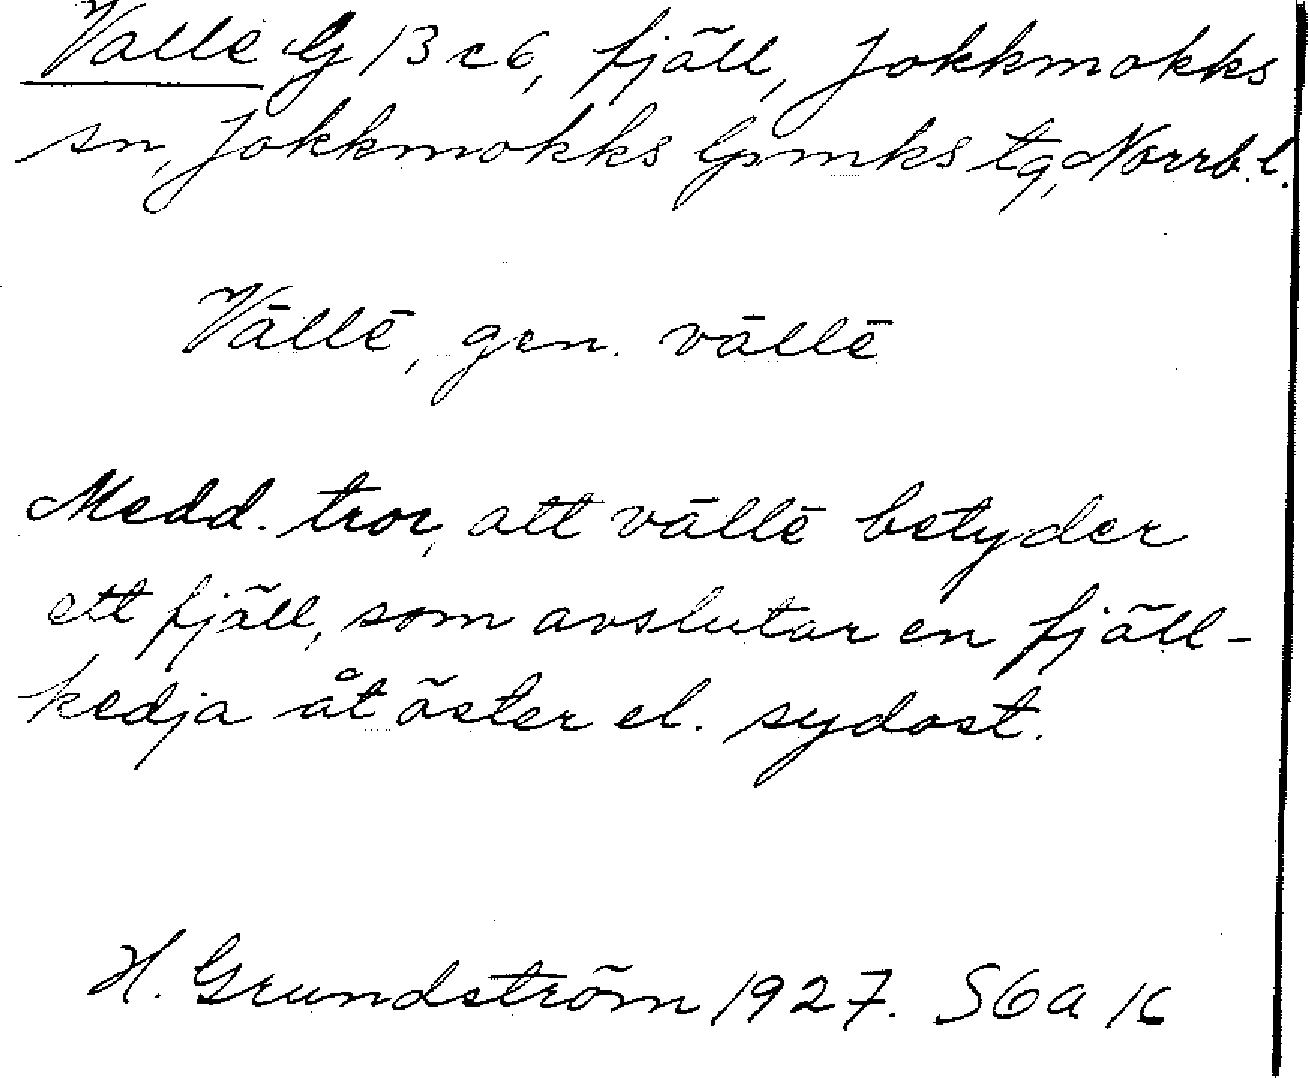 Valle G 13 c 6, fjäll, Jokkmokks
sn, Jokkmokks lpmks tg, Norrb. l.
Vāllē, gen. vāllē
Medd. tror, att vāllē betyder
ett fjäll, som avslutar en fjäll-
kedja åt öster el. sydost.
H. Grundström 1927. S6a 16